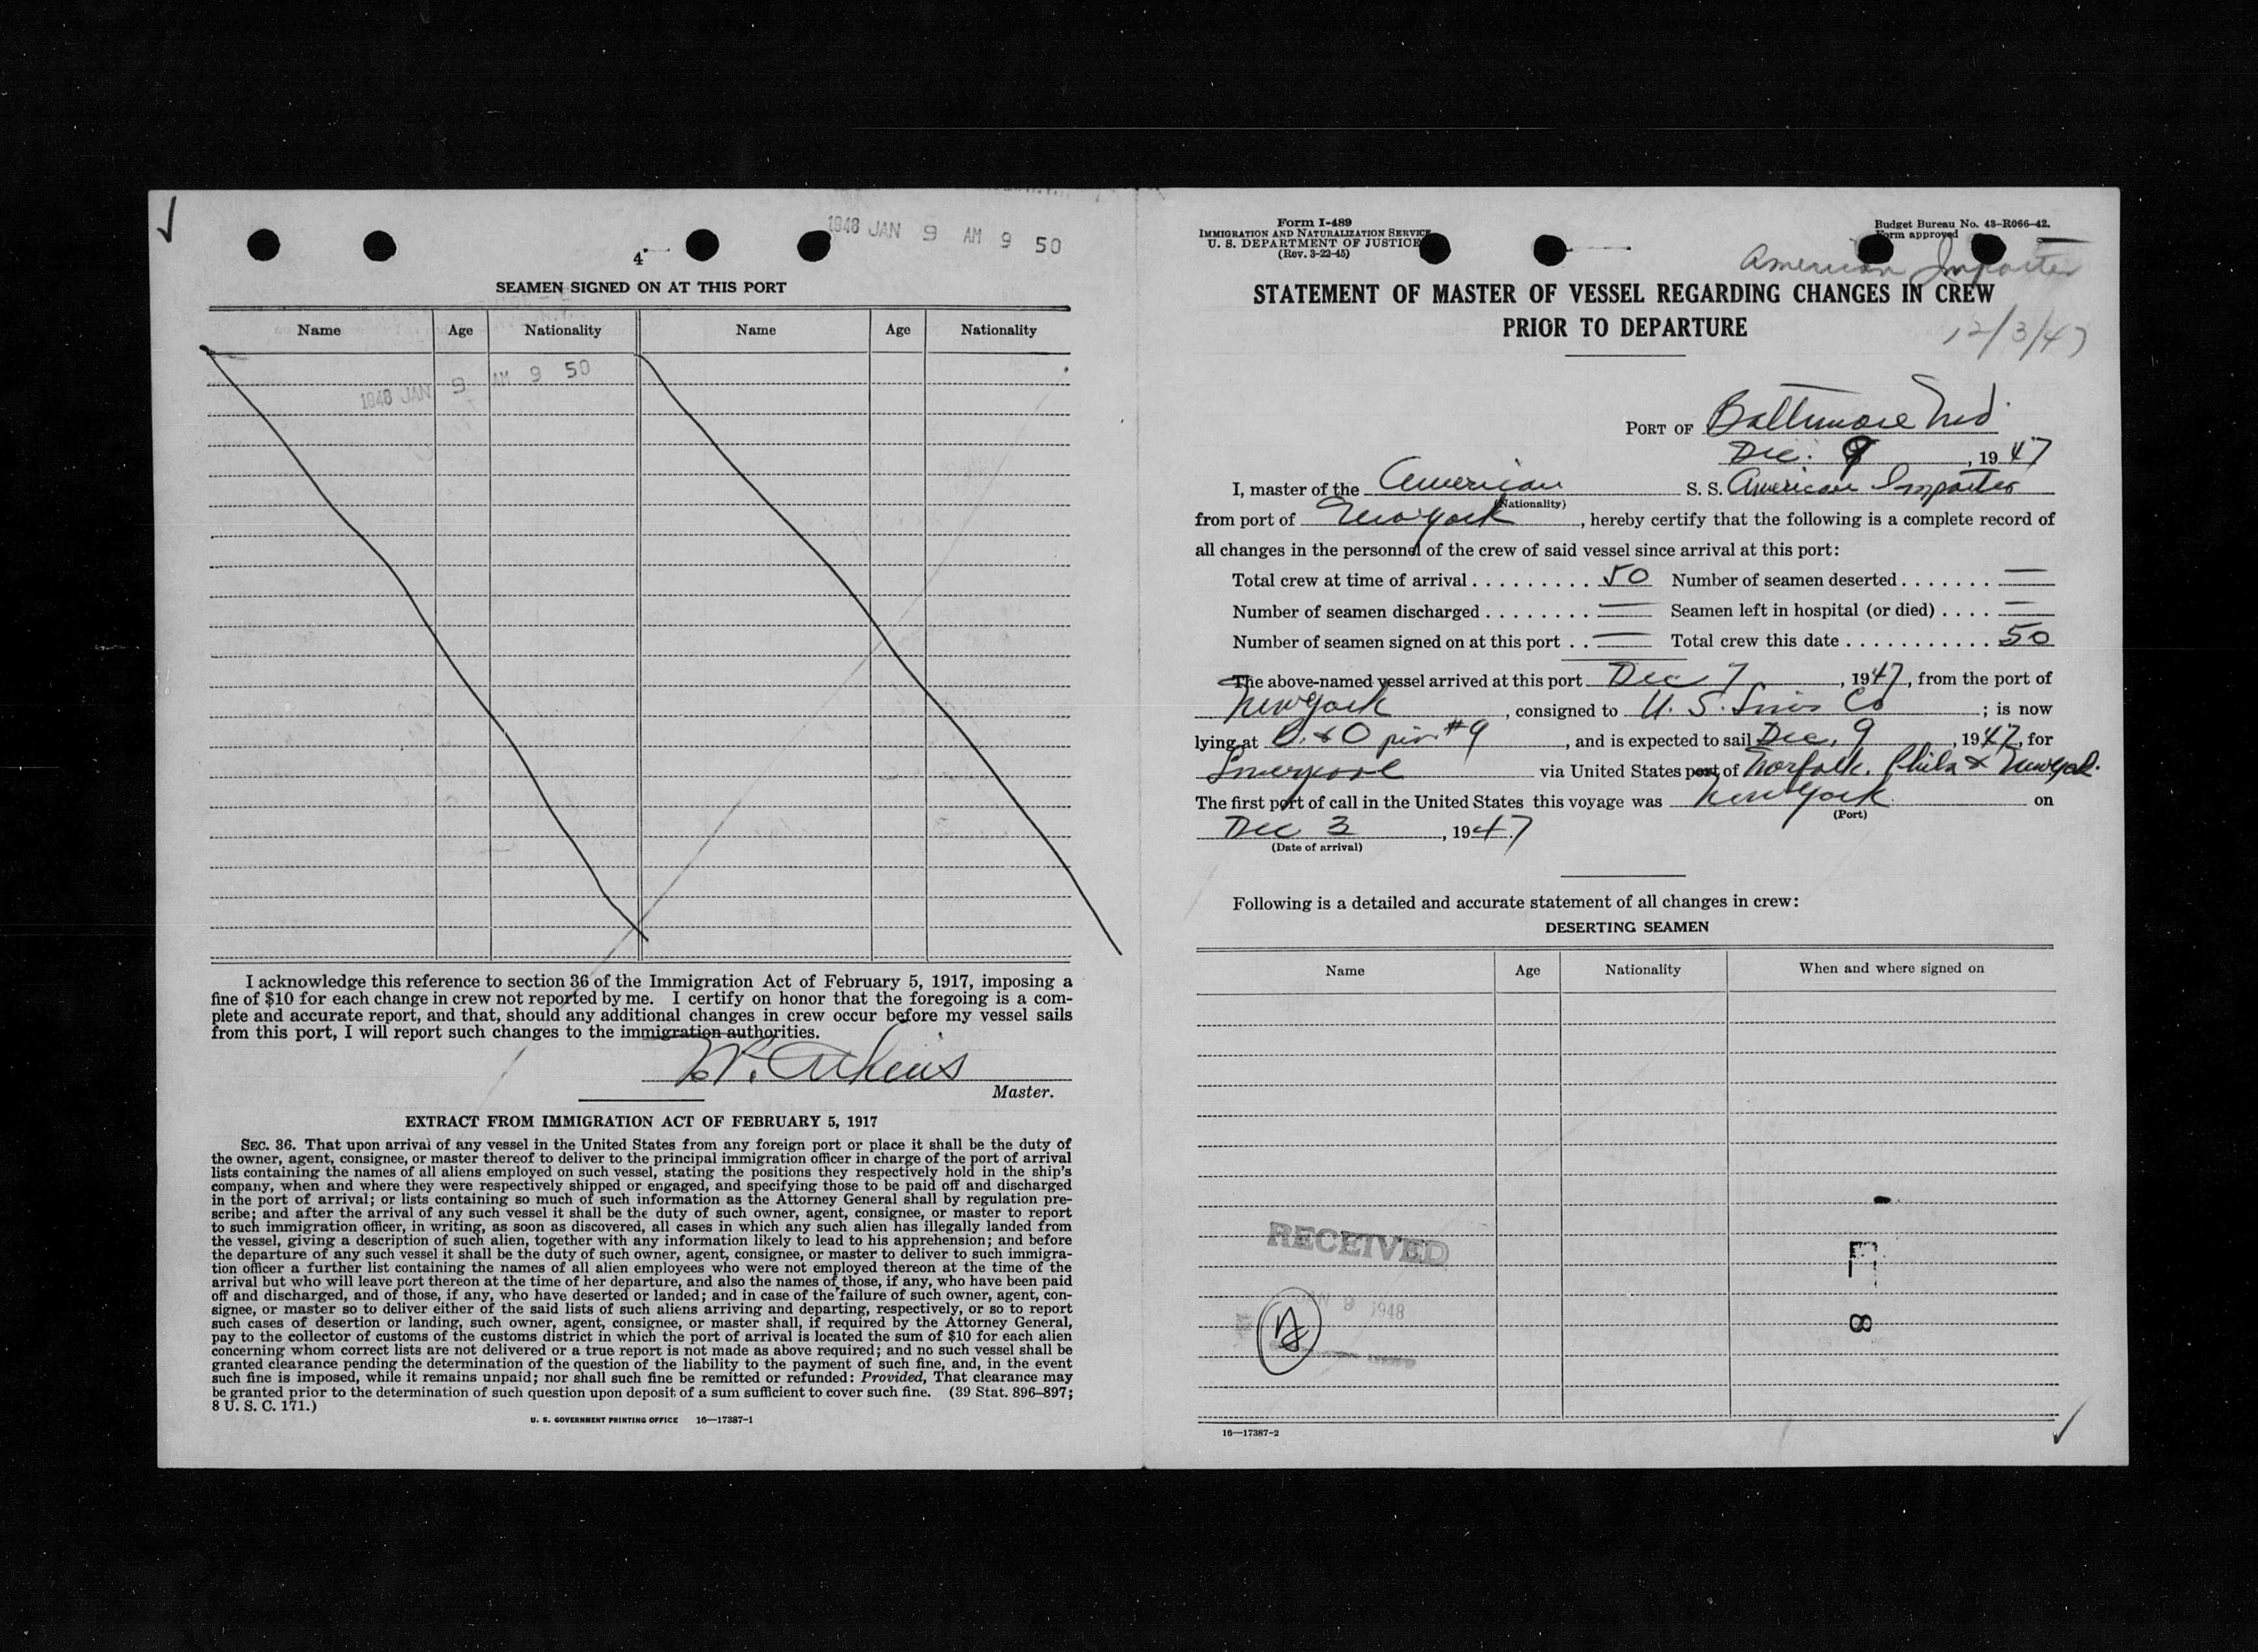 1948 JAN 9 AM 9 50
4
SEAMEN SIGNED ON AT THIS PORT
Name Age Nationality Name Age Nationality
1948 JAN 9 AM 9 50
I acknowledge this reference to section 36 of the Immigration Act of February 5, 1917, imposing a
fine of $10 for each change in crew not reported by me. I certify on honor that the foregoing is a com-
plete and accurate report, and that, should any additional changes in crew occur before my vessel sails
from this port, I will report such changes to the immigration authorities.
Atkins
Master.
EXTRACT FROM IMMIGRATION ACT OF FEBRUARY 5, 1917
SEC. 36. That upon arrival of any vessel in the United States from any foreign port or place it shall be the duty of
the owner, agent, consignee, or master thereof to deliver to the principal immigration officer in charge of the port of arrival
lists containing the names of all aliens employed on such vessel, stating the positions they respectively hold in the ship's
company, when and where they were respectively shipped or engaged, and specifying those to be paid off and discharged
in the port of arrival; or lists containing so much of such information as the Attorney General shall by regulation pre-
scribe; and after the arrival of any such vessel it shall be the duty of such owner, agent, consignee, or master to report
to such immigration officer, in writing, as soon as discovered, all cases in which any such alien has illegally landed from
the vessel, giving a description of such alien, together with any information likely to lead to his apprehension; and before
the departure of any such vessel it shall be the duty of such owner, agent, consignee, or master to deliver to such immigra-
tion officer a further list containing the names of all alien employees who were not employed thereon at the time of the
arrival but who will leave port thereon at the time of her departure, and also the names of those, if any, who have been paid
off and discharged, and of those, if any, who have deserted or landed; and in case of the failure of such owner, agent, con-
signee, or master so to deliver either of the said lists of such aliens arriving and departing, respectively, or so to report
such cases of desertion or landing, such owner, agent, consignee, or master shall, if required by the Attorney General,
pay to the collector of customs of the customs district in which the port of arrival is located the sum of $10 for each alien
concerning whom correct lists are not delivered or a true report is not made as above required; and no such vessel shall be
granted clearance pending the determination of the question of the liability to the payment of such fine, and, in the event
such fine is imposed, while it remains unpaid; nor shall such fine be remitted or refunded: Provided, That clearance may
be granted prior to the determination of such question upon deposit of a sum sufficient to cover such fine. (39 Stat. 896–897;
8 U. S. C. 171.)
U. S. GOVERNMENT PRINTING OFFICE 16—17387-1
Form I-489
IMMIGRATION AND NATURALIZATION SERVICE
U. S. DEPARTMENT OF JUSTICE
(Rev. 3-22-45)
Budget Bureau No. 43-R066-42.
Form approved
American Importer
STATEMENT OF MASTER OF VESSEL REGARDING CHANGES IN CREW
PRIOR TO DEPARTURE
12/3/47
PORT OF Baltimore Md.
Dec. 9, 1947
I, master of the American S. S. American Importer
(Nationality)
from port of New York, hereby certify that the following is a complete record of
all changes in the personnel of the crew of said vessel since arrival at this port:
Total crew at time of arrival . . . . . . . . . 50 Number of seamen deserted . . . . . . . —
Number of seamen discharged . . . . . . . . — Seamen left in hospital (or died) . . . . —
Number of seamen signed on at this port . . — Total crew this date . . . . . . . . . . . . 50
The above-named vessel arrived at this port Dec 7, 1947, from the port of
New York, consigned to U. S. Lines Co; is now
lying at B. & O pier #9, and is expected to sail Dec. 9, 1947, for
Liverpool via United States port of Norfolk, Phila & New York.
The first port of call in the United States this voyage was New York on
(Port)
Dec 3, 1947
(Date of arrival)
Following is a detailed and accurate statement of all changes in crew:
DESERTING SEAMEN
Name Age Nationality When and where signed on
RECEIVED
JAN 9 1948
8
16—17387-2